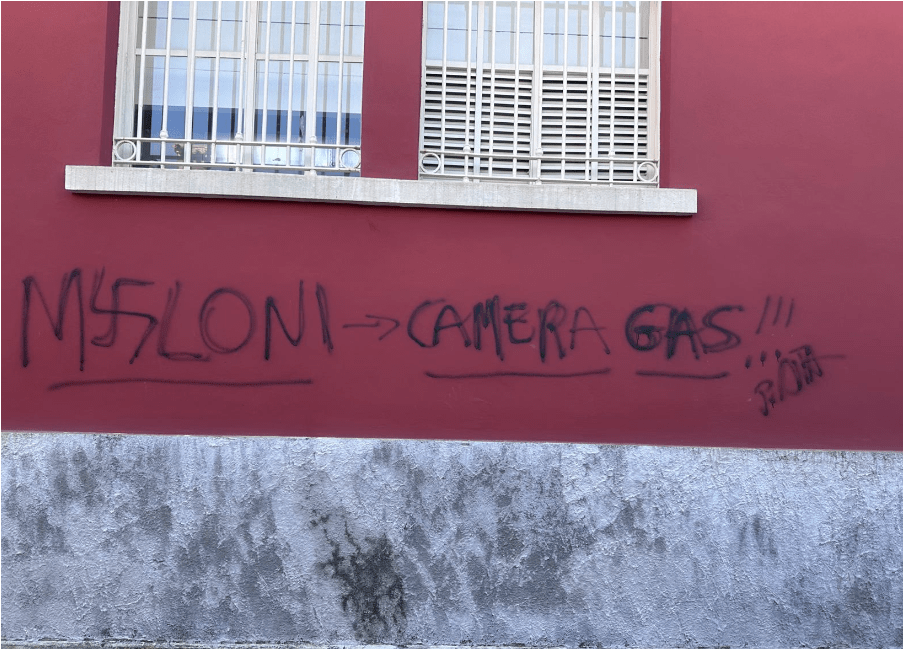 M卐LONI → CAMERA GAS!!!